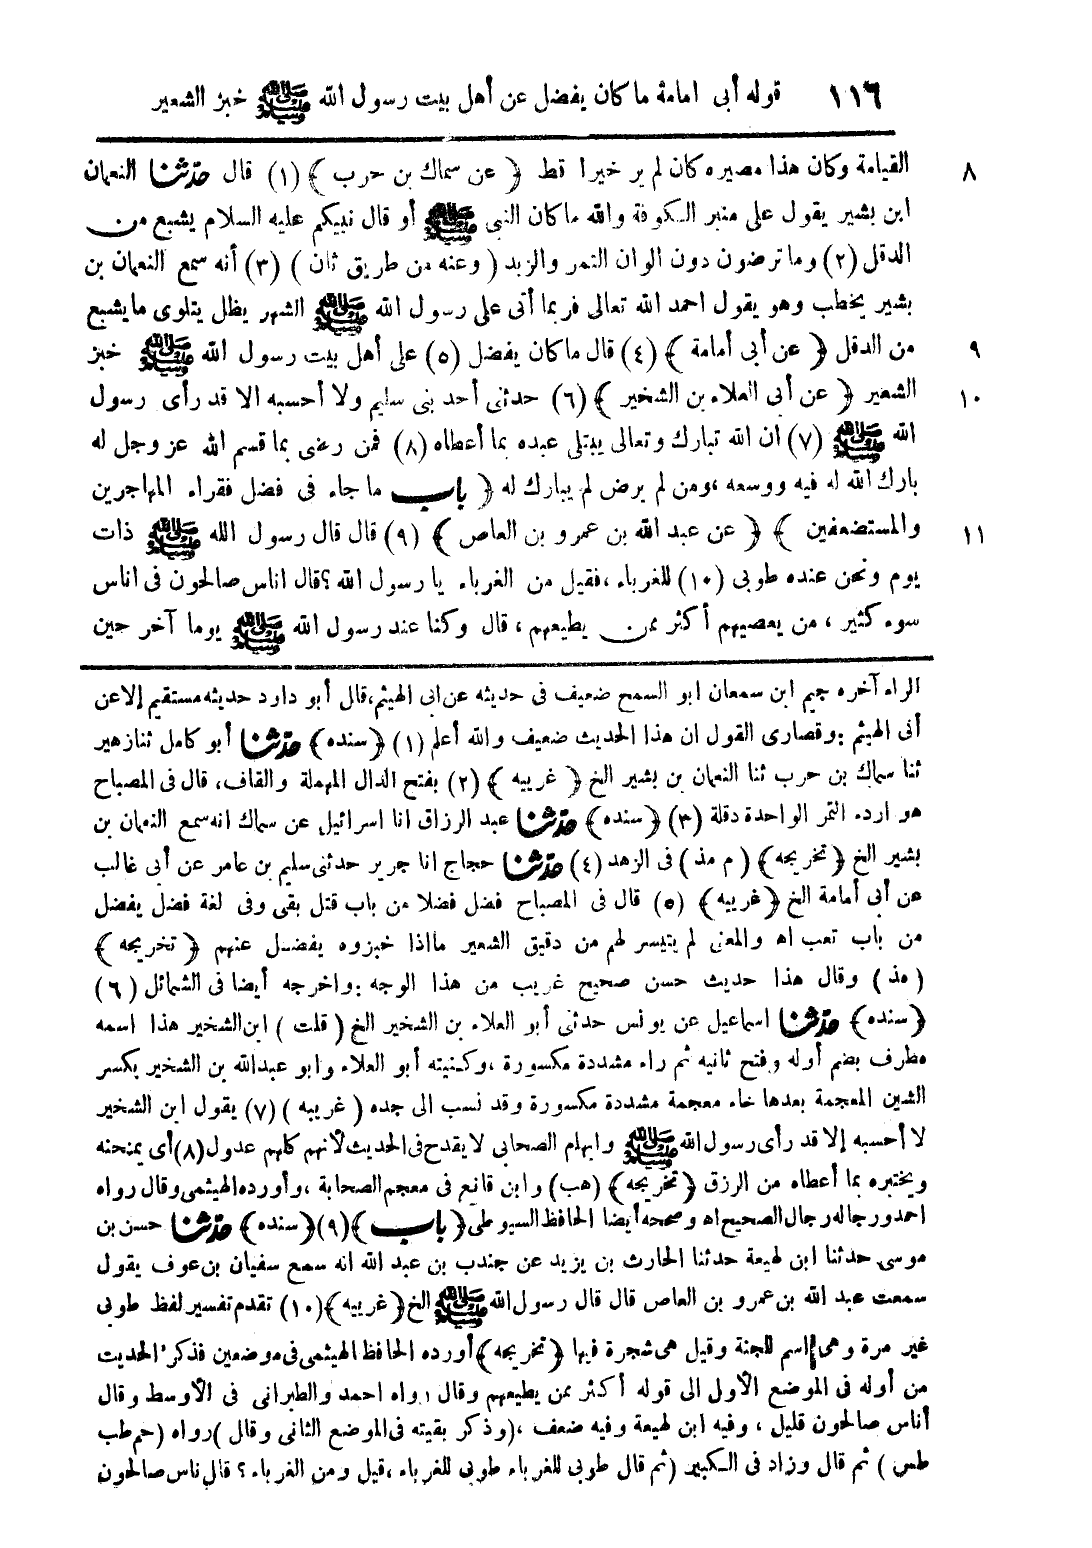 ١١٦ قوله أبى امامة ما كان يفضل عن أهل بيت رسول الله ﷺ خبز الشعير
٨ القيامة وكان هذا مصيره كان لم ير خيرا قط ﴿ عن سماك بن حرب ﴾ (١) قال حدّثنا النعمان
ابن بشير يقول على منبر الكوفة والله ما كان النبى ﷺ أو قال نبيكم عليه السلام يشبع من
الدقل (٢) وما ترضون دون الوان التمر والزبد ( وعنه من طريق ثان ) (٣) أنه سمع النعمان بن
بشير يخطب وهو يقول احمد الله تعالى فربما أتى على رسول الله ﷺ الشهر يظل يتلوى ما يشبع
٩ من الدقل ﴿ عن أبى أمامة ﴾ (٤) قال ما كان يفضل (٥) على أهل بيت رسول الله ﷺ خبز
١٠ الشعير ﴿ عن أبى العلاء بن الشخير ﴾ (٦) حدثنى أحد بنى سليم ولا أحسبه الا قد رأى رسول
الله ﷺ (٧) أن الله تبارك وتعالى يبتلى عبده بما أعطاه (٨) فمن رضى بما قسم الله عز وجل له
بارك الله له فيه ووسعه ،ومن لم يرض لم يبارك له ﴿ باب ما جاء فى فضل فقراء المهاجرين
١١ والمستضعفين ﴾ ﴿ عن عبد الله بن عمرو بن العاص ﴾ (٩) قال قال رسول الله ﷺ ذات
يوم ونحن عنده طوبى (١٠) للغرباء ،فقيل من الغرباء يا رسول الله ؟قال اناس صالحون فى اناس
سوء كثير ، من يعصيهم أكثر ممن يطيعهم ، قال وكنا عند رسول الله ﷺ يوما آخر حين
الراء آخره جيم ابن سمعان ابو السمح ضعيف فى حديثه عن ابى الهيثم،قال أبو داود حديثه مستقيم إلا عن
أبى الهيثم :وقصارى القول ان هذا الحديث ضعيف والله أعلم (١) ﴿سنده﴾ حدّثنا أبو كامل ثنا زهير
ثنا سماك بن حرب ثنا النعمان بن بشير الخ ﴿ غريبه ﴾ (٢) بفتح الدال المهملة والقاف، قال فى المصباح
هو اردء التمر الواحدة دقلة (٣) ﴿سنده﴾ حدّثنا عبد الرزاق انا اسرائيل عن سماك انه سمع النعمان بن
بشير الخ ﴿تخريجه﴾ ( م مذ ) فى الزهد (٤) حدّثنا حجاج انا جرير حدثنى سليم بن عامر عن أبى غالب
عن أبى أمامة الخ ﴿غريبه﴾ (٥) قال فى المصباح فضل فضلا من باب قتل بقى وفى لغة فضل يفضل
من باب تعب اه والمعنى لم يتيسر لهم من دقيق الشعير مااذا خبزوه يفضل عنهم ﴿ تخريجه ﴾
( مذ ) وقال هذا حديث حسن صحيح غريب من هذا الوجه :واخرجه أيضا فى الشمائل (٦)
﴿سنده﴾ حدّثنا اسماعيل عن يونس حدثنى أبو العلاء بن الشخير الخ ( قلت ) ابن الشخير هذا اسمه
مطرف بضم أوله وفتح ثانيه ثم راء مشددة مكسورة ،وكنيته أبو العلاء وابو عبدالله بن الشخير بكسر
الشين المعجمة بعدها خاء معجمة مشددة مكسورة وقد نسب الى جده ( غريبه ) (٧) يقول ابن الشخير
لا أحسبه إلا قد رأى رسول الله ﷺ وابهام الصحابى لا يقدح فى الحديث لأنهم كلهم عدول (٨) أى يمتحنه
ويختبره بما أعطاه من الرزق ﴿تخريجه﴾ (هب) وابن قانع فى معجم الصحابة ،وأورده الهيثمى وقال رواه
احمد ورجاله رجال الصحيح اه وصححه أيضا الحافظ السيوطى ﴿ باب ﴾ (٩) ﴿سنده﴾ حدّثنا حسن بن
موسى حدثنا ابن لهيعة حدثنا الحارث بن يزيد عن جندب بن عبد الله انه سمع سفيان بن عوف يقول
سمعت عبد الله بن عمرو بن العاص قال قال رسول الله ﷺ الخ ﴿غريبه﴾ (١٠) تقدم تفسير لفظ طوبى
غير مرة وهى اسم للجنة وقيل هى شجرة فيها ﴿تخريجه﴾ أورده الحافظ الهيثمى فى موضعين فذكر الحديث
من أوله فى الموضع الأول الى قوله أكثر ممن يطيعهم وقال رواه احمد والطبرانى فى الأوسط وقال
أناس صالحون قليل ، وفيه ابن لهيعة وفيه ضعف ،(وذكر بقيته فى الموضع الثانى وقال ) رواه (حم طب
طس ) ثم قال وزاد فى الكبير (ثم قال طوبى للغرباء طوبى للغرباء ،قيل ومن الغرباء ؟ قال ناس صالحون